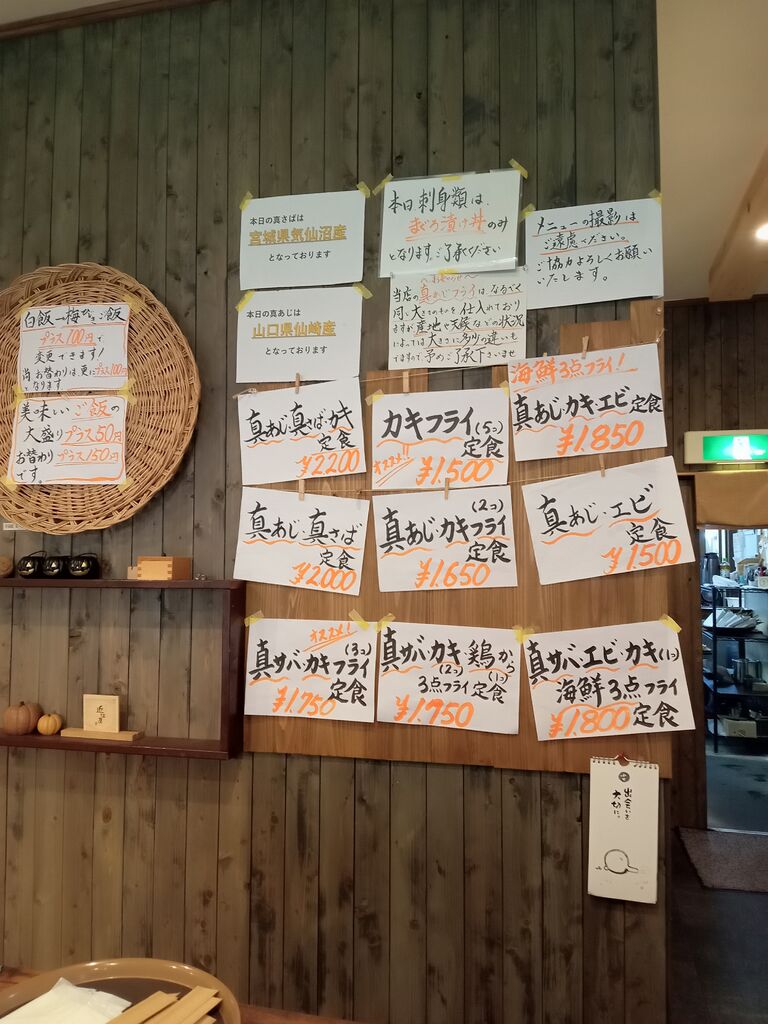 本日の真さばは
宮城県気仙沼産
となっております
本日刺身類は、
まぐろ漬け丼のみ
となります。ご了承ください
メニューの撮影は
ご遠慮ください。
ご協力よろしくお願い
いたします。
本日の真あじは
山口県仙崎産
となっております
当店の真あじフライは、なるべく
同じ大きさのものを仕入れており
ますが産地や天候などの状況
によっては大きさに多少の違いも
でますので、予めご了承下さいませ
白飯→梅ひじきご飯
プラス100円で
変更できます!
尚お替わりは更にプラス100円
となります
美味しいご飯の
大盛りプラス50円
お替わりプラス150円
です。
真あじ・真さば・カキ
定食
¥2200
カキフライ(5コ)
定食
オススメ!!
¥1500
海鮮3点フライ!
真あじ・カキ・エビ定食
¥1.850
真あじ・真さば
定食
¥2000
(2コ)
真あじ・カキフライ
定食
¥1.650
真あじ・エビ
定食
¥1.500
オススメ!
(3コ)
真サバ・カキフライ
定食
¥1.750
真サバ・カキ・鶏から
(2コ) (1コ)
3点フライ定食
¥1.750
真サバ・エビ・カキ(1コ)
海鮮3点フライ
定食
¥1.800
出会いを
大切に。